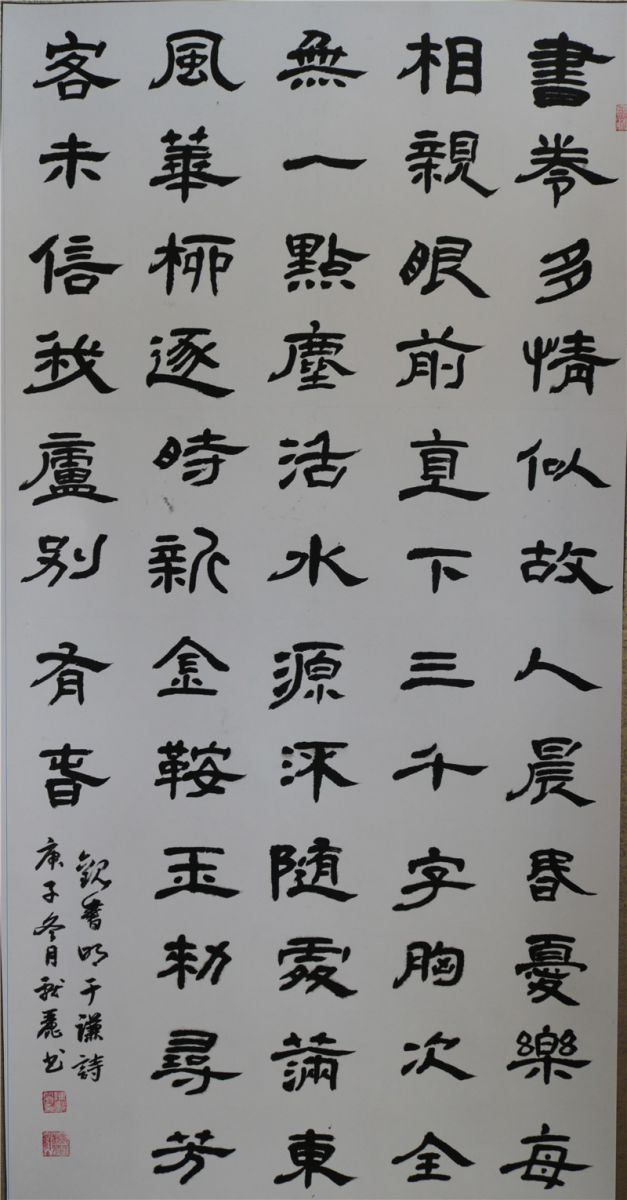 書卷多情似故人晨昏憂樂每
相親眼前直下三千字胸次全
無一點塵活水源流隨處滿東
風華柳逐時新金鞍玉勅尋芳
客未信我廬別有春
觀書明于謙詩
庚子冬月麗书